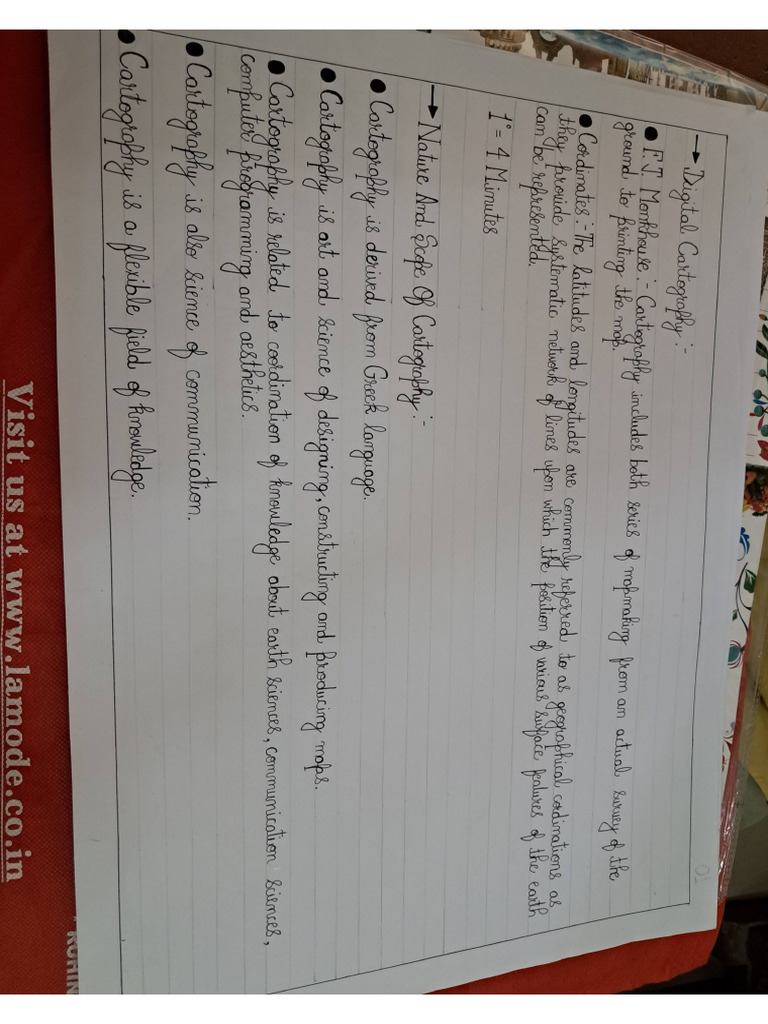 01
→ Digital Cartography :-
● F.J. Monkhouse :- Cartography includes both series of mapmaking from an actual survey of the
ground to printing the map.
● Cordinates :- The latitudes and longitudes are commonly referred to as geographical cordinations as
they provide systematic network of lines upon which the position of various surface features of the earth
can be represented.
1° = 4 Minutes
→ Nature And Scope Of Cartography :-
● Cartography is derived from Greek language.
● Cartography is art and science of designing, constructing and producing maps.
● Cartography is related to coordination of knowledge about earth sciences, communication sciences,
computer programming and aesthetics.
● Cartography is also science of communication.
● Cartography is a flexible field of knowledge.
Visit us at www.lamode.co.in